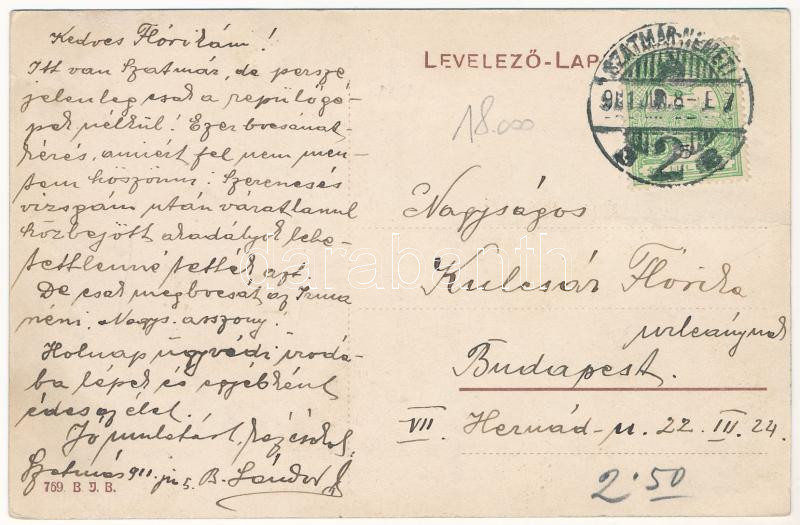 Kedves Flórikám!
Itt van Szatmár, de persze
jelenleg csak a repülőgé-
pek nélkül! Ezer bocsánat-
kérés, amiért fel nem men-
tem köszönni. Szerencsés
vizsgám után váratlanul
közbejött akadályok lehe-
tetlenné tették azt.
De csak megbocsát az Irma
néni, Nagys. asszony.
Holnap ügyvédi irodá-
ba lépek és egyébként
édes az élet.
Jó mulatást, kézcsók
Szatmár 911. 5. B. Sándor
769 B. J. B.
LEVELEZŐ-LAP
SZATMÁR-NÉMETI
911 JUL 8
2
18.000
Nagyságos
Kulcsár Flórika
urleánynak
Budapest.
VII Hernád-u. 22. III. 24.
2.50
darabanth